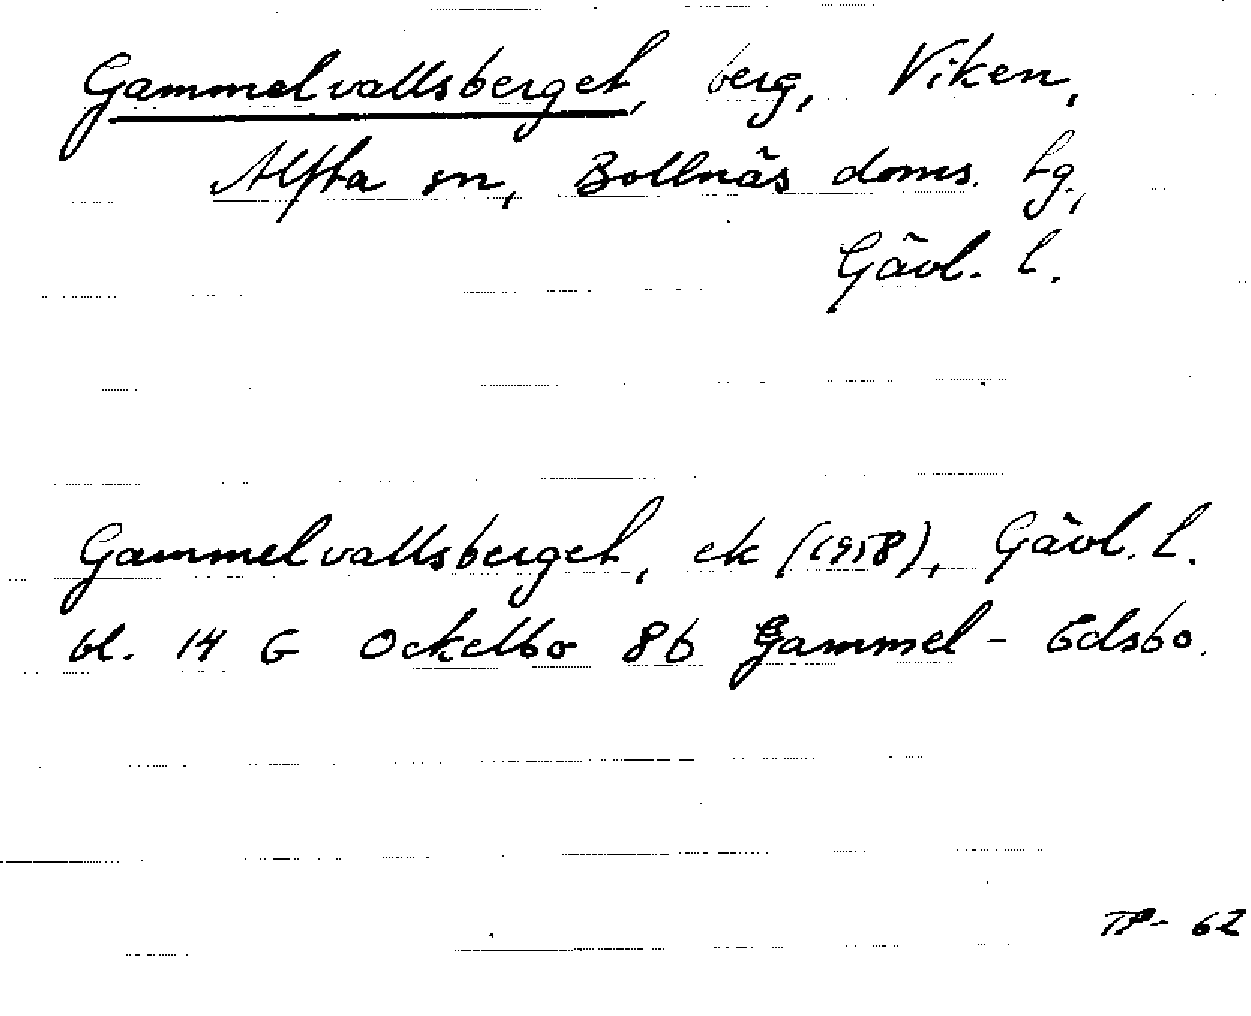 Gammelvallsberget, berg, Viken,
Alfta sn, Bollnäs doms. tg,
Gävl. l.
Gammelvallsberget, ek (1958), Gävl. l.
bl. 14 G Ockelbo 8b Gammel-Edsbo.
TP- 62